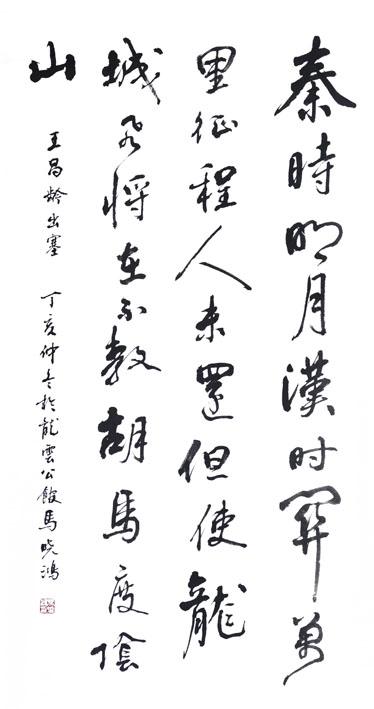 秦時明月漢时關萬
里征程人未還但使龍
城飛将在不教胡馬度陰
山
王昌龄出塞 丁亥仲冬於龍雲公館馬晓鴻